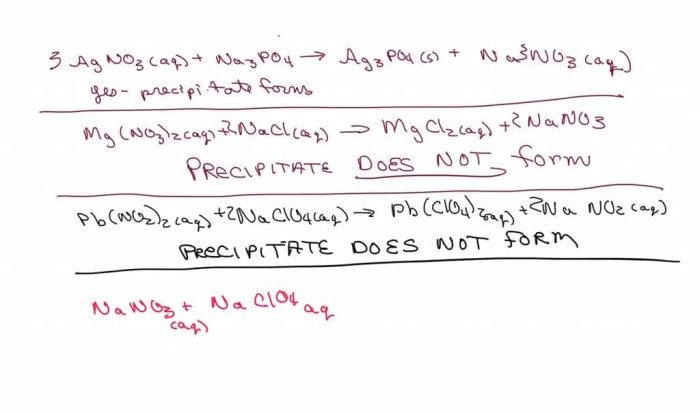 3 AgNO3(aq) + Na3PO4 → Ag3PO4(s) + Na3NO3(aq)
yes - precipitate forms
Mg(NO3)2(aq) + 2NaCl(aq) → MgCl2(aq) + 2NaNO3
PRECIPITATE DOES NOT form
Pb(NO2)2(aq) + 2NaClO4(aq) → Pb(ClO4)2(aq) + 2Na NO2(aq)
PRECIPITATE DOES NOT FORM
NaNO3(aq) + NaClO4 aq